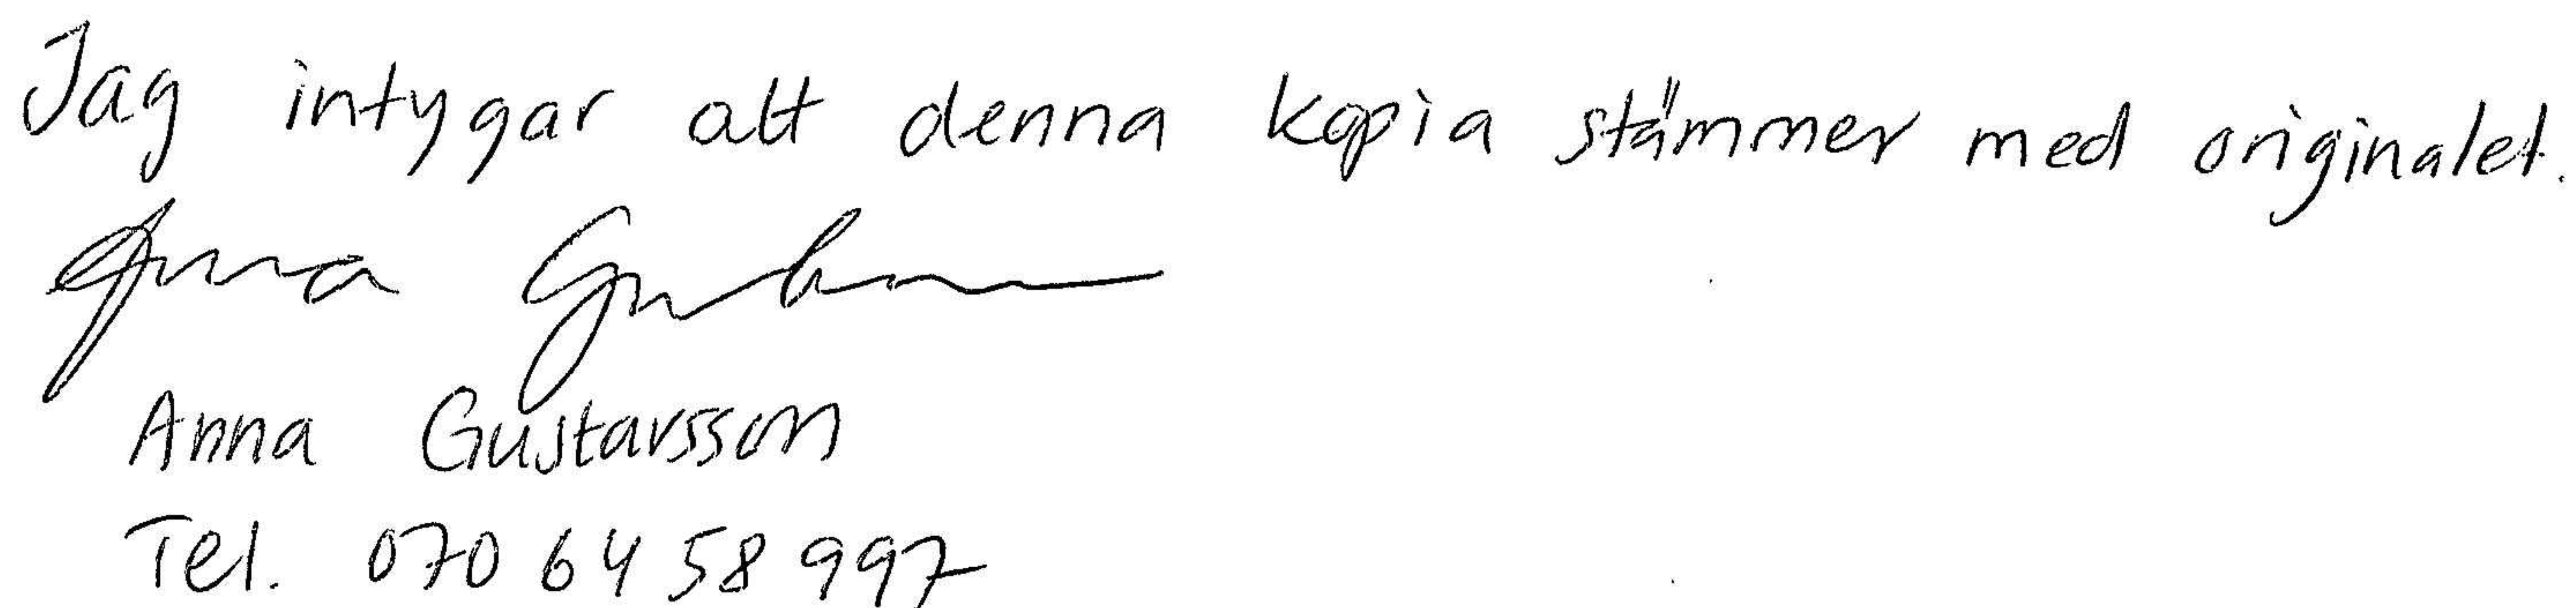 Jag intygar att denna kopia stämmer med originalet.
Anna Gustavsson
Tel. 070 64 58 997